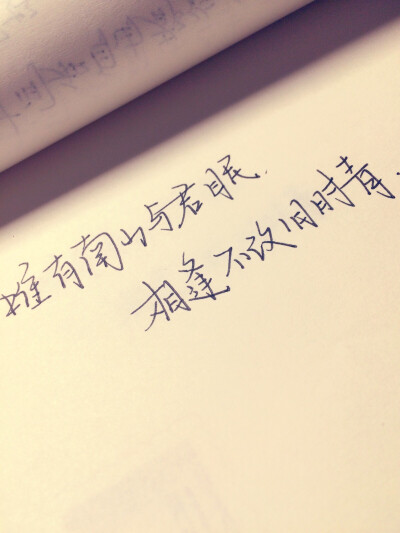 惟有南山与君眠.
相逢不改旧时青.